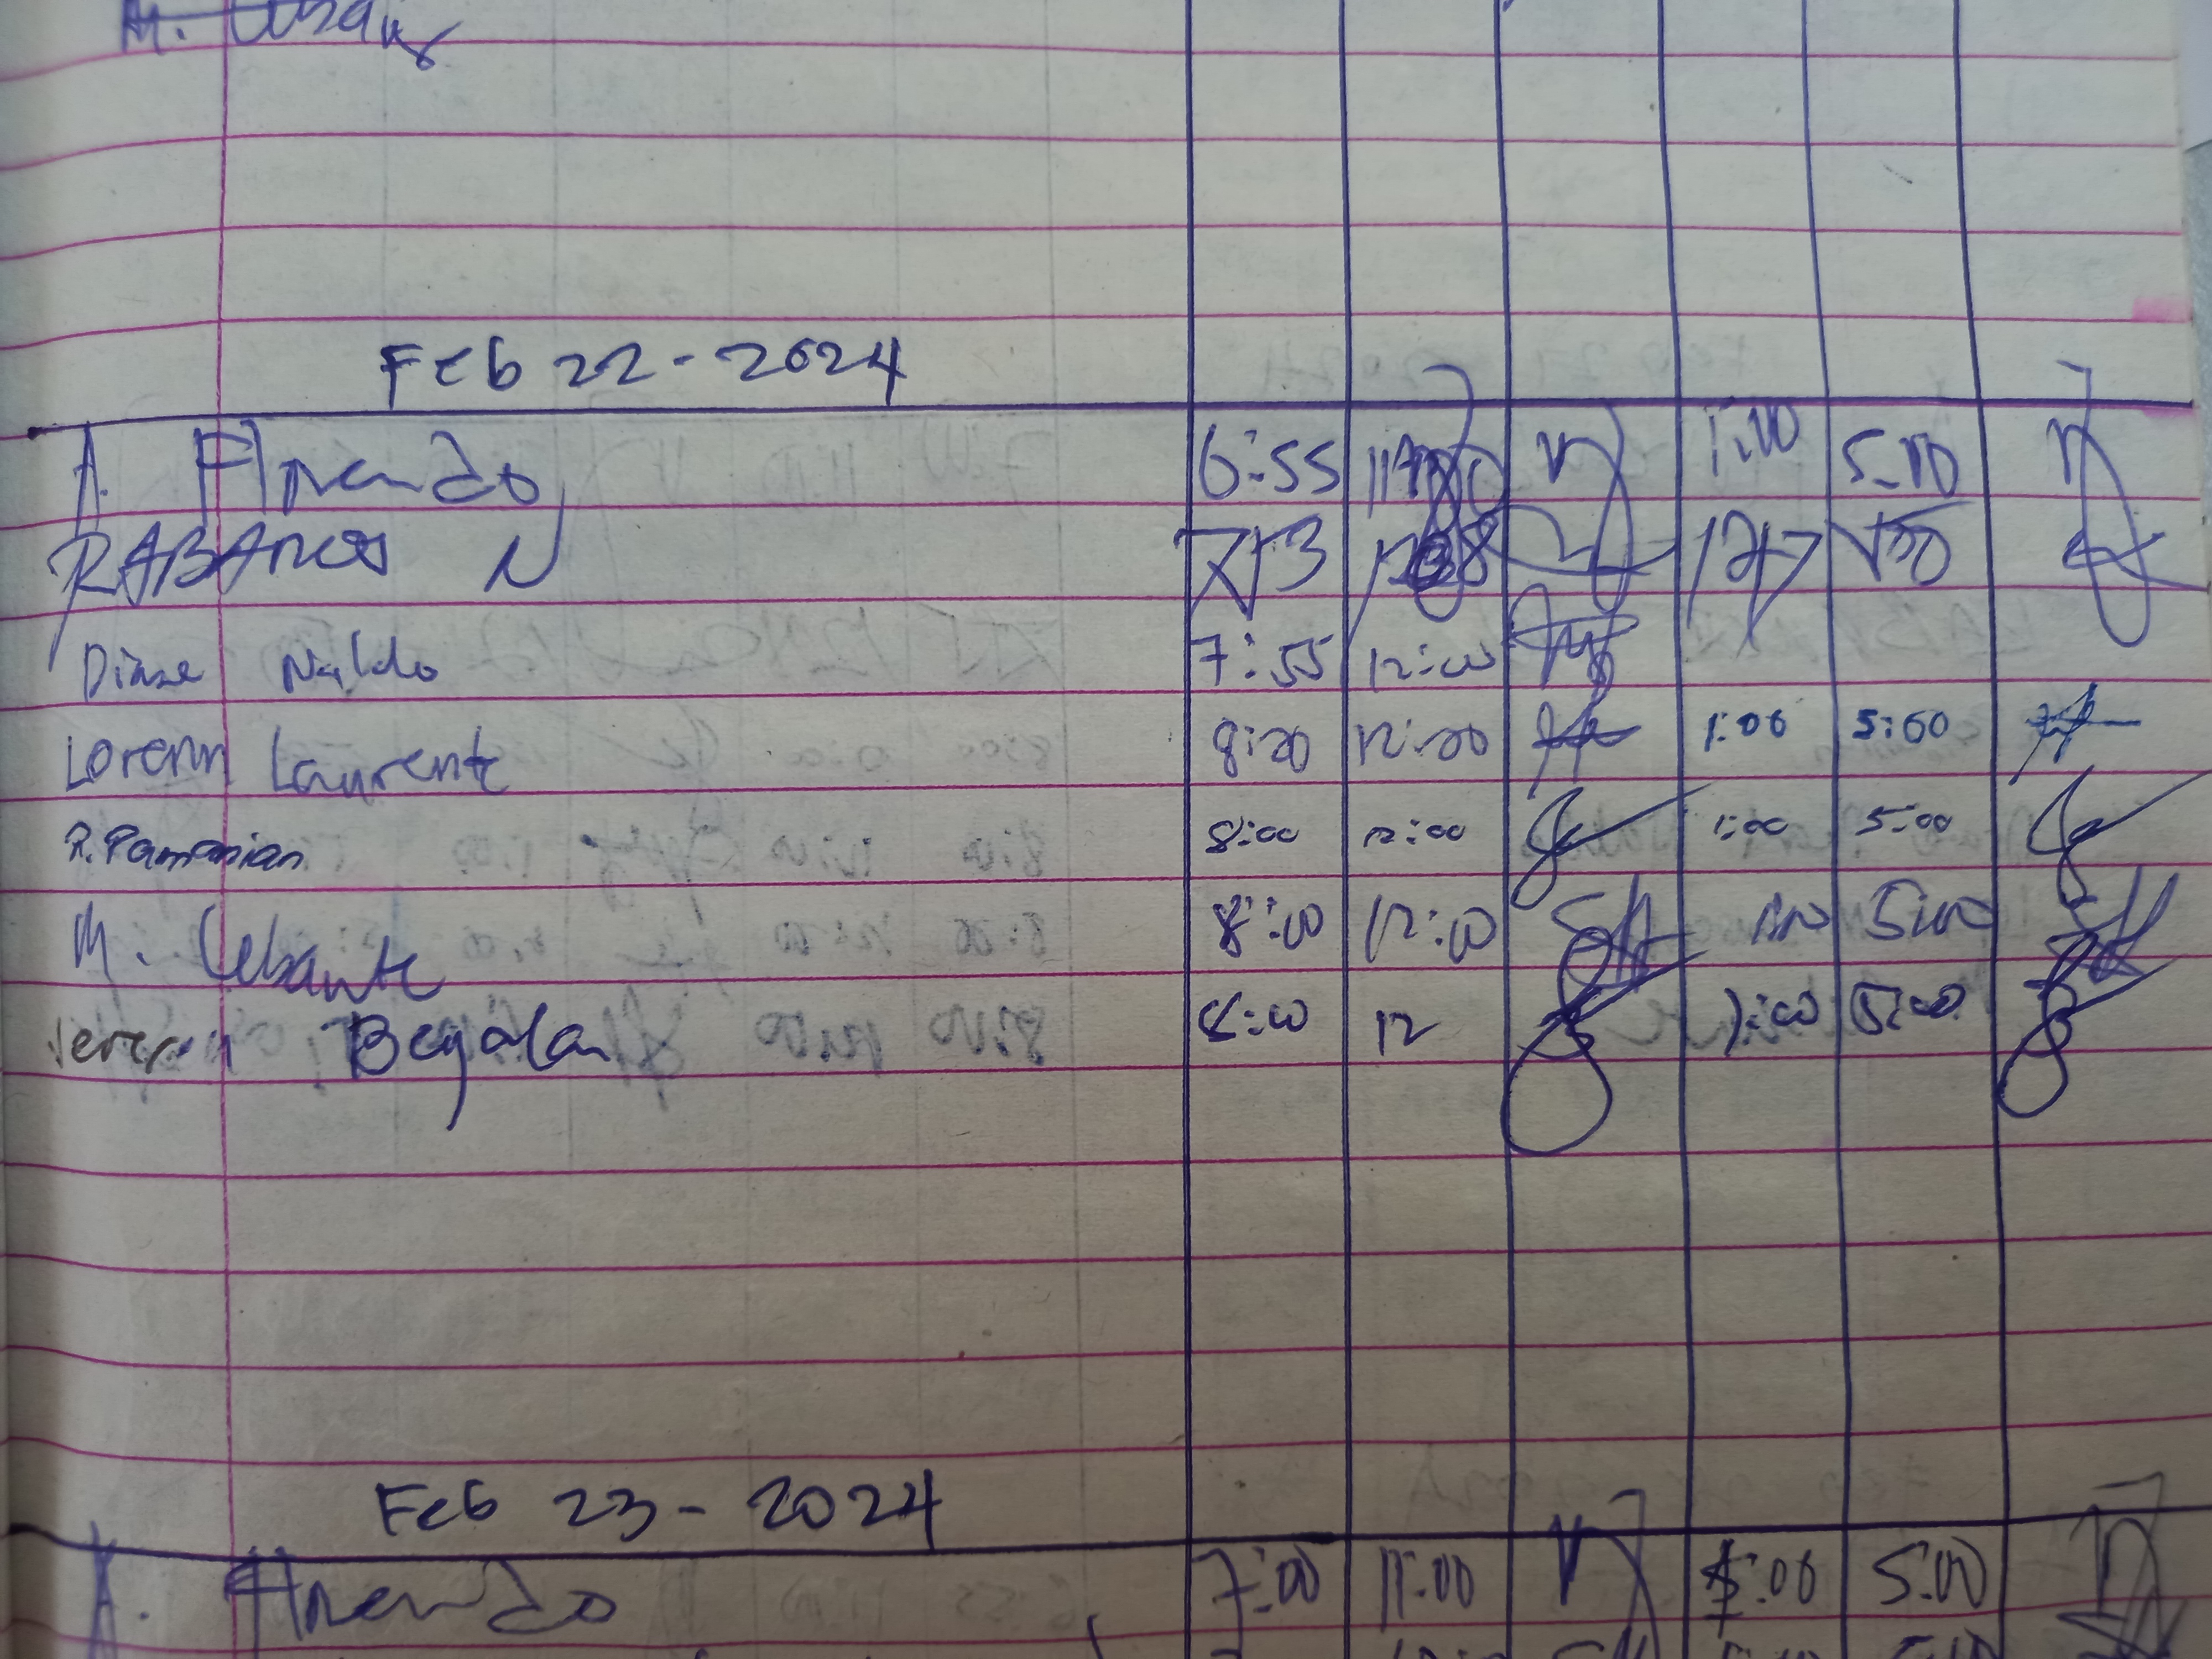 M.
Feb 22-2024
A. Florendo 6:55 1:00 5:00
RABANES N 713 1247 500
Diane Naldo 7:55 12:00
Lorenn Laurente 8:20 12:20 1:00 5:00
R. Pamanian 8:00 12:00 1:00 5:00
M. Cebante 8:00 12:00 1:00 5:00
Begalan 8:00 12 1:00 5:00
Feb 23-2024
A. Florendo 7:00 11:00 :00 5:00